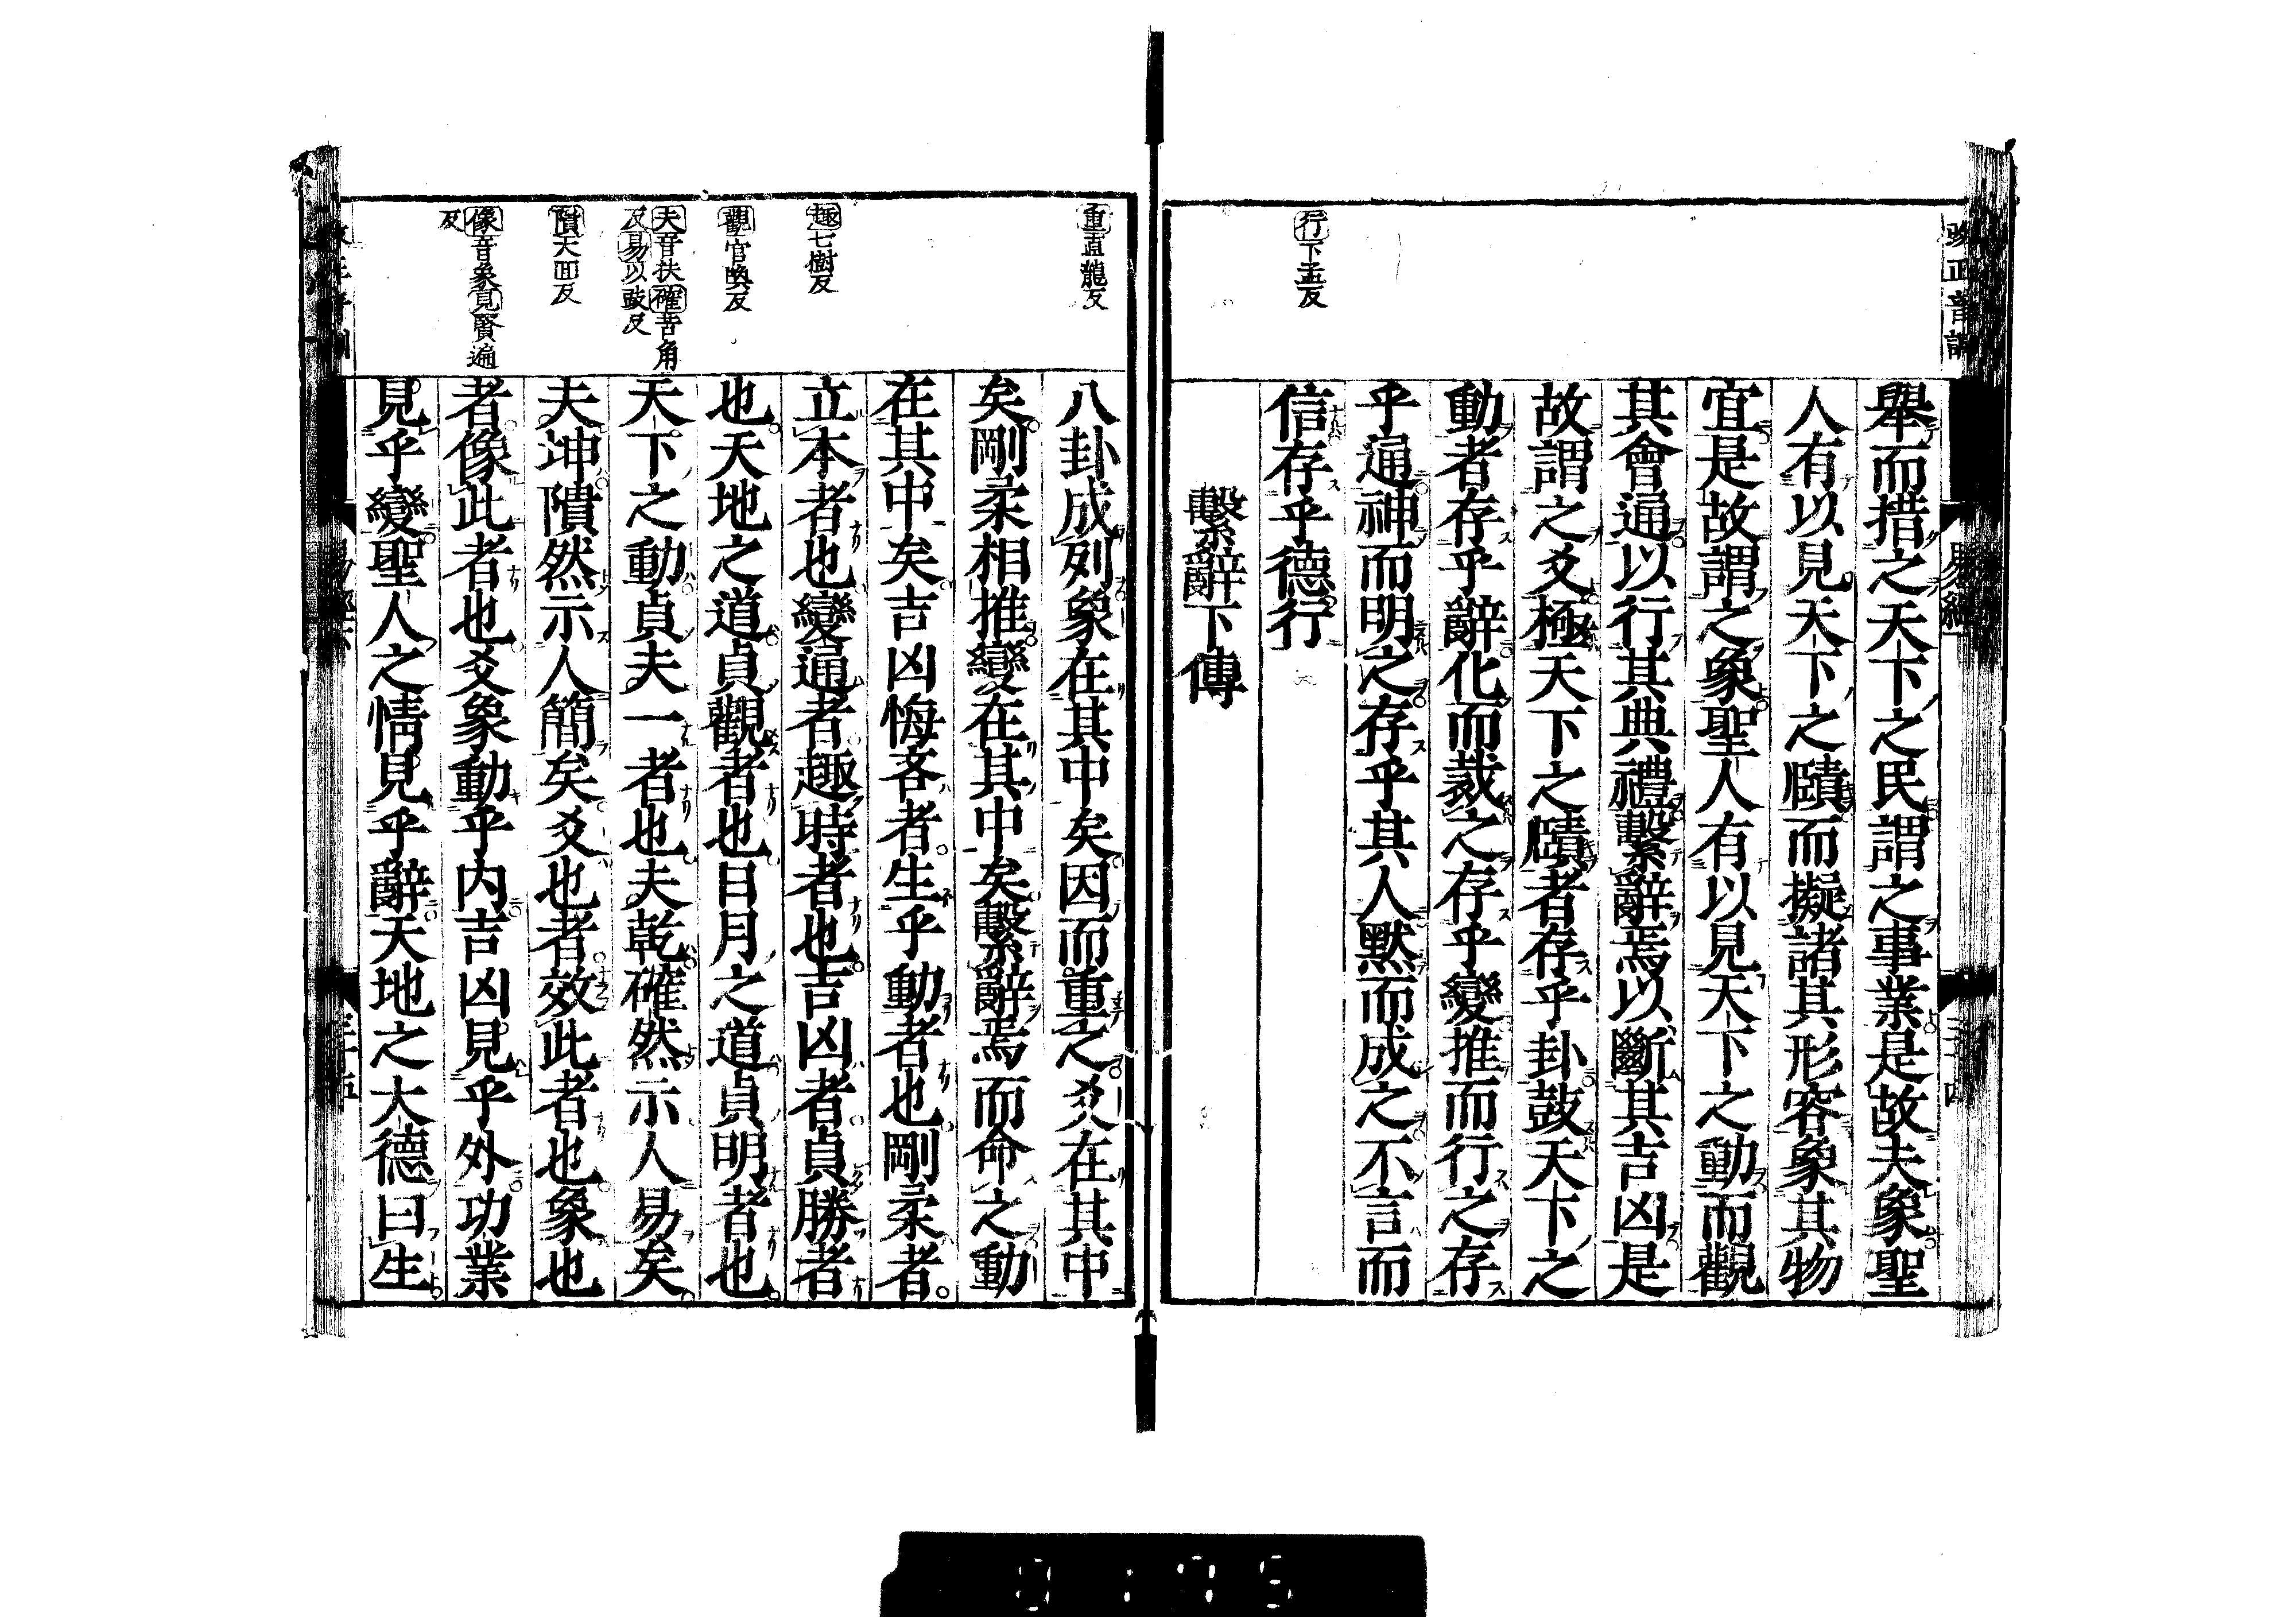 改正音訓
易經
三十四
行下孟反
舉而措之天下之民謂之事業是故夫象聖
人有以見天下之賾而擬諸其形容象其物
宜是故謂之象聖人有以見天下之動而觀
其會通以行其典禮繫辭焉以斷其吉凶是
故謂之爻極天下之賾者存乎卦鼓天下之
動者存乎辭化而裁之存乎變推而行之存
乎通神而明之存乎其人默而成之不言而
信存乎德行
繫辭下傳
重直龍反
趣七樹反
觀官喚反
夫音扶確苦角
反易以豉反
隤大回反
像音象見賢遍
反
八卦成列象在其中矣因而重之爻在其中
矣剛柔相推變在其中矣繫辭焉而命之動
在其中矣吉凶悔吝者生乎動者也剛柔者
立本者也變通者趣時者也吉凶者貞勝者
也天地之道貞觀者也日月之道貞明者也
天下之動貞夫一者也夫乾確然示人易矣
夫坤隤然示人簡矣爻也者效此者也象也
者像此者也爻象動乎內吉凶見乎外功業
見乎變聖人之情見乎辭天地之大德曰生
三十五